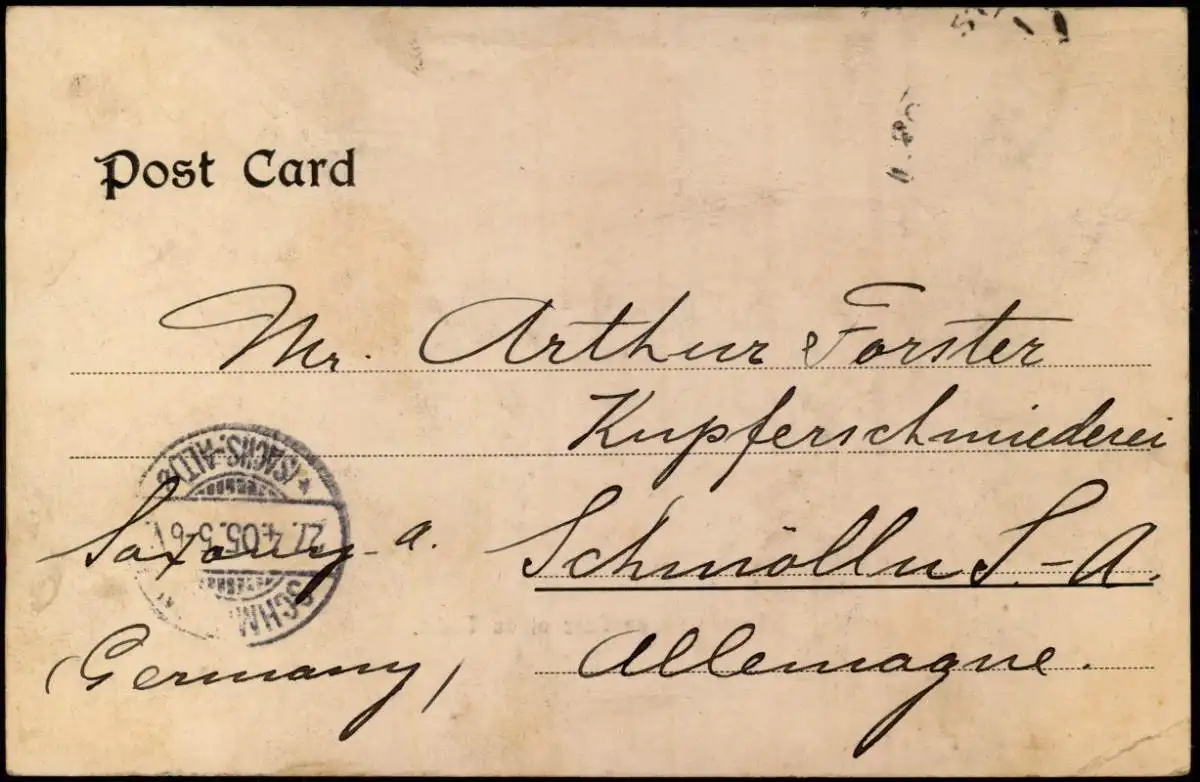 Post Card
Mr. Arthur Forster
Kupferschmiederei
Saxony-a. Schmölln S.-A.
(Germany) Allemagne.
(SACHS.-ALTB
27.4.05.5-6
SCHM